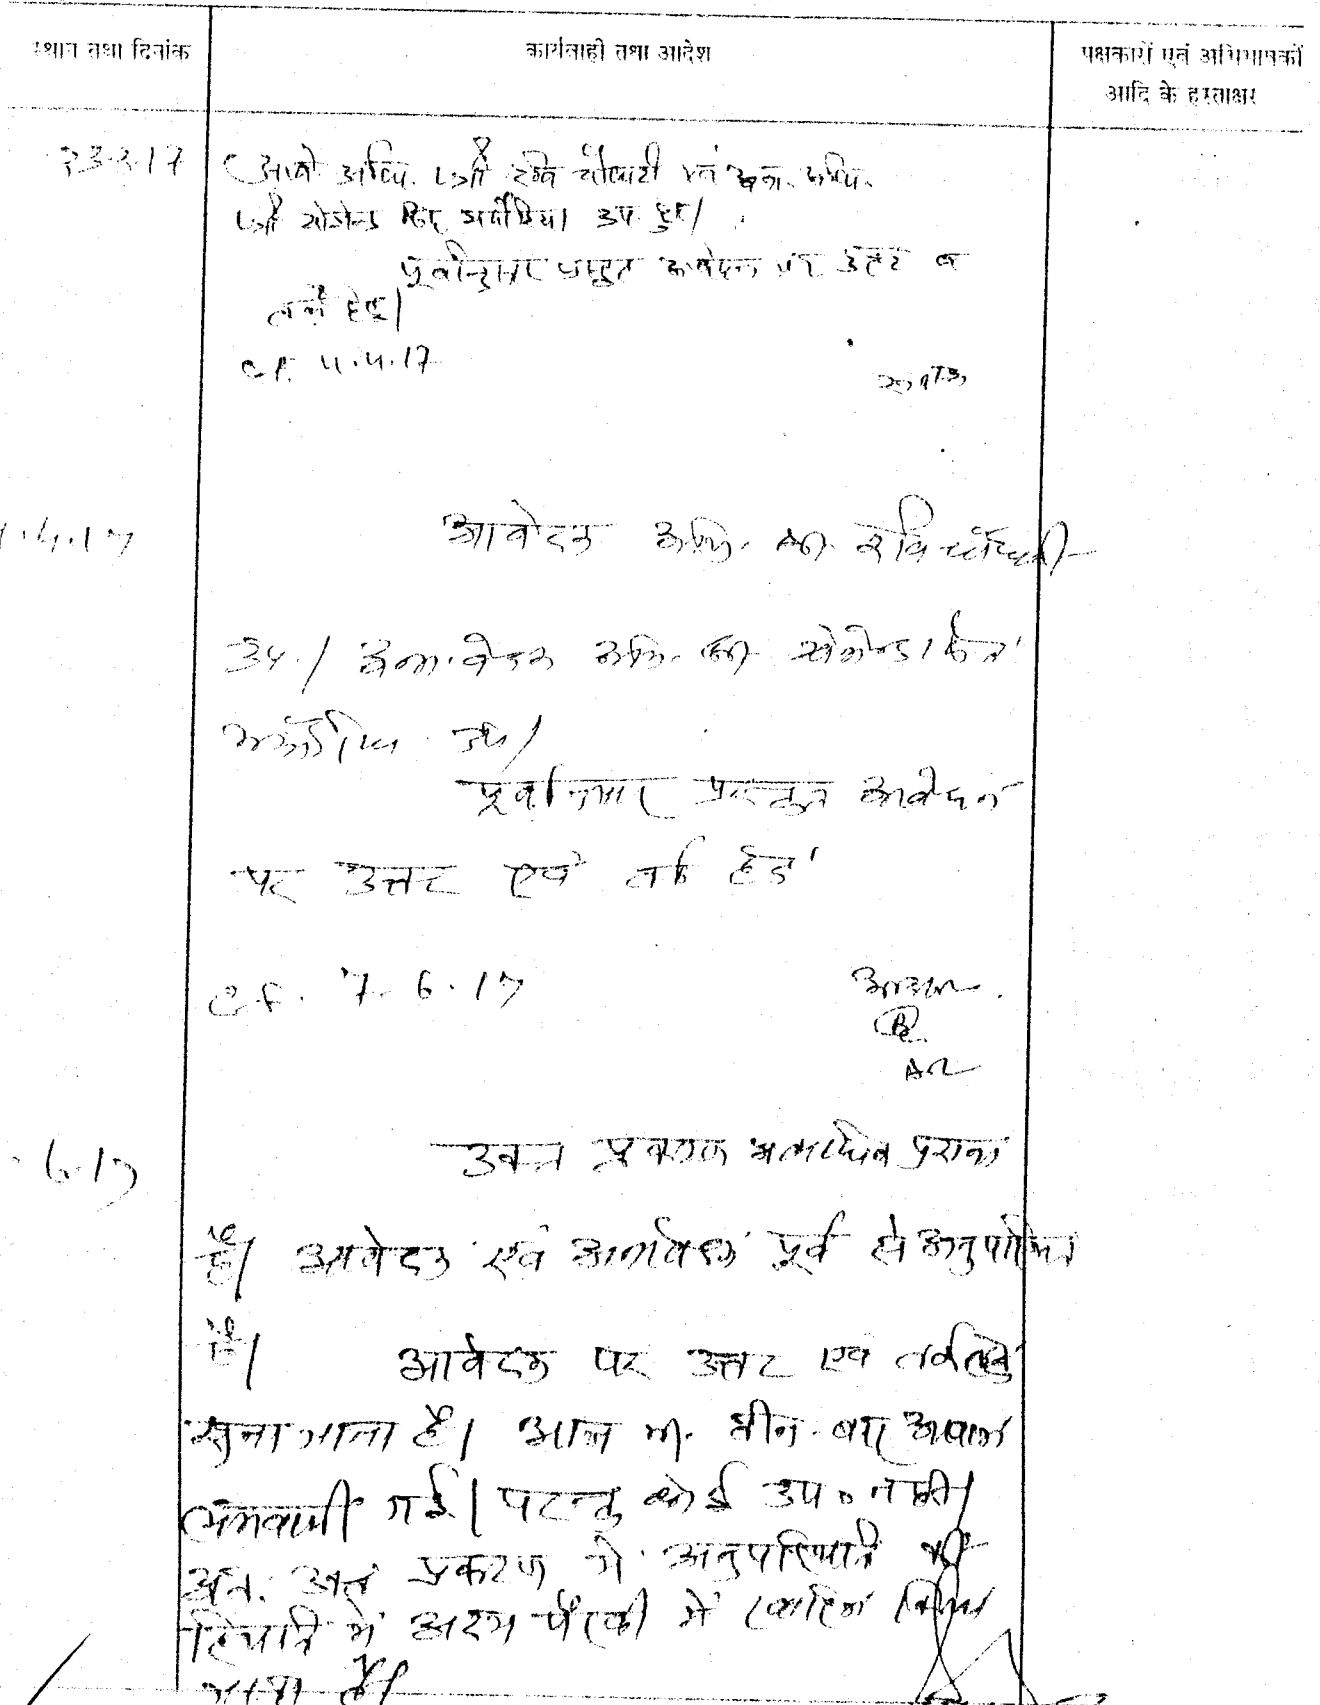 स्थान तथा दिनांक
कार्यवाही तथा आदेश
पक्षकारों एवं अभिभाषकों
आदि के हस्ताक्षर
23.3.17
आवे. अधि. श्री रवि चौधरी एवं अना. अधि.
श्री सिंह उप. हुए।
पूर्वानुसार प्रस्तुत आवेदन पर उत्तर व
तर्क हेतु।
C.F. 4.4.17
.4.17
आवेदक अधि. श्री रवि चौधरी
उप./ अनावेदक अधि. श्री
उप/
पूर्वानुसार प्रस्तुत आवेदन
पर उत्तर एवं तर्क हेतु
C.F. 7.6.17
.6.17
उक्त प्रकरण अत्यधिक पुराना
है। आवेदक एवं अनावेदक पूर्व से अनुपस्थित
है। आवेदन पर उत्तर एवं तर्क हेतु
जाता है। आज भी तीन बार आवाज
लगवायी गई। परन्तु कोई उप० नहीं।
अतः प्रकरण में अनुपस्थिति की
स्थिति में अदम पैरवी में खारिज किया
जाता है।